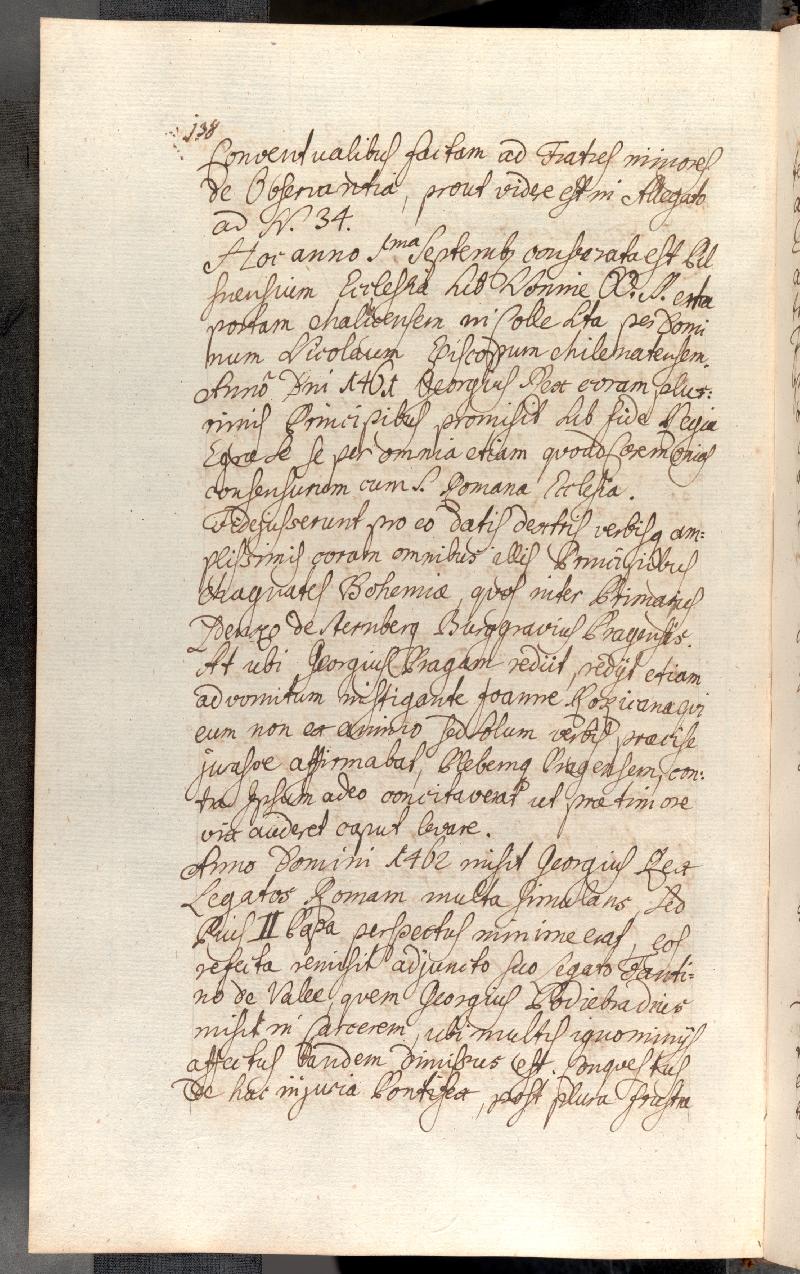 138
Conventualibus factam ad Fratres minores
de Observantia, prout videre est in Allegato
ad N. 34.
Hoc anno 1ma Septemb consecrata est Pil
snensium Ecclesia sub Nomine extra
portam Malicensem in Colle sita per Domi
num Nicolaum Episcopum
Anno Dni 1461 Georgius Rex coram plur:
rimis Principibus promisit sub fide Regia
se per omnia etiam quoad Caeremonias
consensurum cum S. Romana Ecclesia.
Fidejusserunt pro eo datis dextris verbisq am:
plissimis coram omnibus illis Principibus
Magnates Bohemiæ, quos inter Primarius
Zdenko de Sternberg Burggravius Pragensis.
At ubi Georgius Pragam rediit, redijt etiam
ad vomitum instigante Joanne Rokicana qui
eum non ex animo sed solum verbis præcise
jurasse affirmabat, Plebemq Pragensem con:
tra Ipsum adeo concitaverat ut præ timore
vix auderet caput levare.
Anno Domini 1462 misit Georgius Rex
Legatos Romam multa simulans, sed
Pius II Papa perspectus minime erat, eos
refecta remisit adjuncto suo Legato Fanti:
no de Valee, quem Georgius Podiebradius
misit in Carcerem, ubi multis ignominijs
affectus tandem dimissus est. Conquestus
de hac injuria Pontifex, post plura frustra